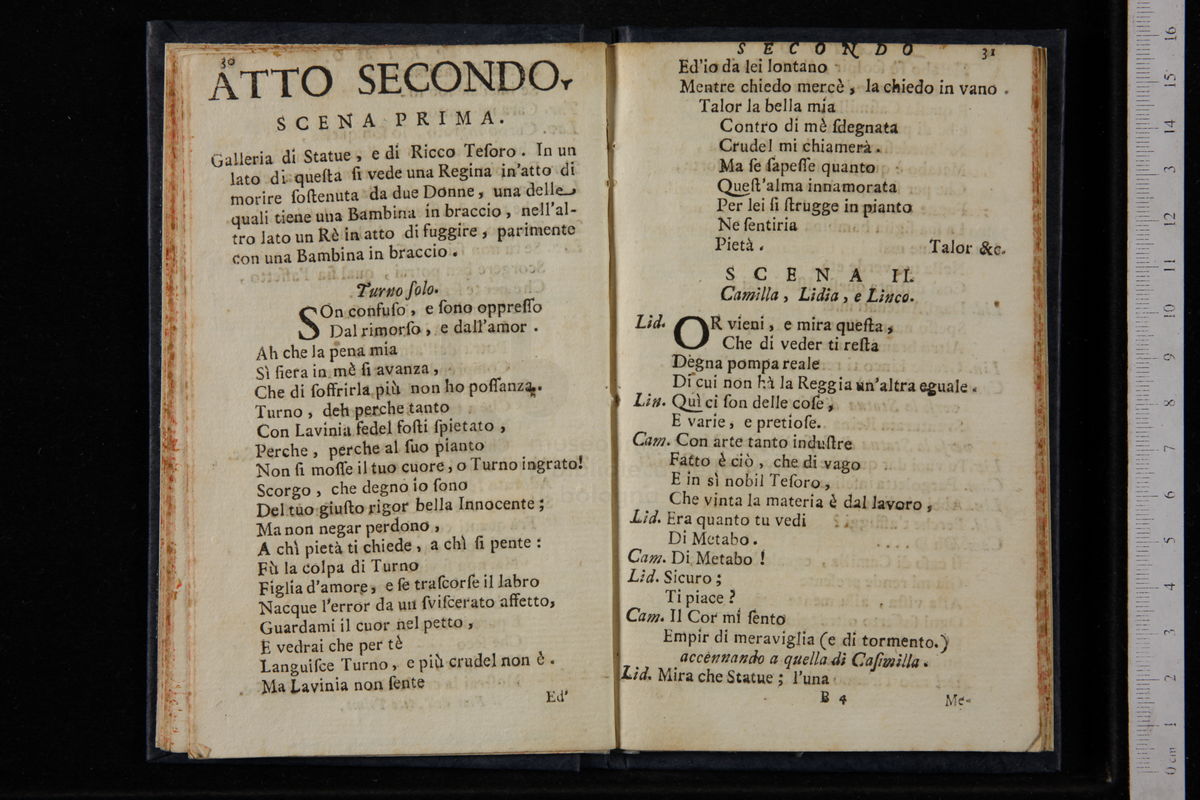 30
ATTO SECONDO.
SCENA PRIMA.
Galleria di Statue, e di Ricco Teſoro. In un
lato di queſta ſi vede una Regina in'atto di
morire ſoſtenuta da due Donne, una delle
quali tiene una Bambina in braccio, nell'al-
tro lato un Rè in atto di fuggire, parimente
con una Bambina in braccio.
Turno ſolo.
SOn confuſo, e ſono oppreſſo
Dal rimorſo, e dall'amor.
Ah che la pena mia
Sì fiera in mè ſi avanza,
Che di ſoffrirla più non ho poſſanza.
Turno, deh perche tanto
Con Lavinia fedel foſti ſpietato,
Perche, perche al ſuo pianto
Non ſi moſſe il tuo cuore, o Turno ingrato!
Scorgo, che degno io ſono
Del tuo giuſto rigor bella Innocente;
Ma non negar perdono,
A chì pietà ti chiede, a chì ſi pente:
Fù la colpa di Turno
Figlia d'amore, e ſe traſcorſe il labro
Nacque l'error da un ſviſcerato affetto,
Guardami il cuor nel petto,
E vedrai che per tè
Languiſce Turno, e più crudel non è.
Ma Lavinia non ſente
Ed'
SECONDO 31
Ed'io da lei lontano
Mentre chiedo mercè, la chiedo in vano.
Talor la bella mia
Contro di mè ſdegnata
Crudel mi chiamerà.
Ma ſe ſapeſſe quanto
Queſt'alma innamorata
Per lei ſi ſtrugge in pianto
Ne ſentiria
Pietà. Talor &c.
SCENA II.
Camilla, Lidia, e Linco.
Lid. OR vieni, e mira queſta,
Che di veder ti reſta
Degna pompa reale
Di cui non hà la Reggia un'altra eguale.
Lin. Quì ci ſon delle coſe,
E varie, e pretioſe.
Cam. Con arte tanto induſtre
Fatto è ciò, che di vago
E in sì nobil Teſoro,
Che vinta la materia è dal lavoro,
Lid. Era quanto tu vedi
Di Metabo.
Cam. Di Metabo!
Lid. Sicuro;
Ti piace?
Cam. Il Cor mi ſento
Empir di meraviglia (e di tormento.)
accennando a quella di Caſimilla.
Lid. Mira che Statue; l'una
B 4 Me-